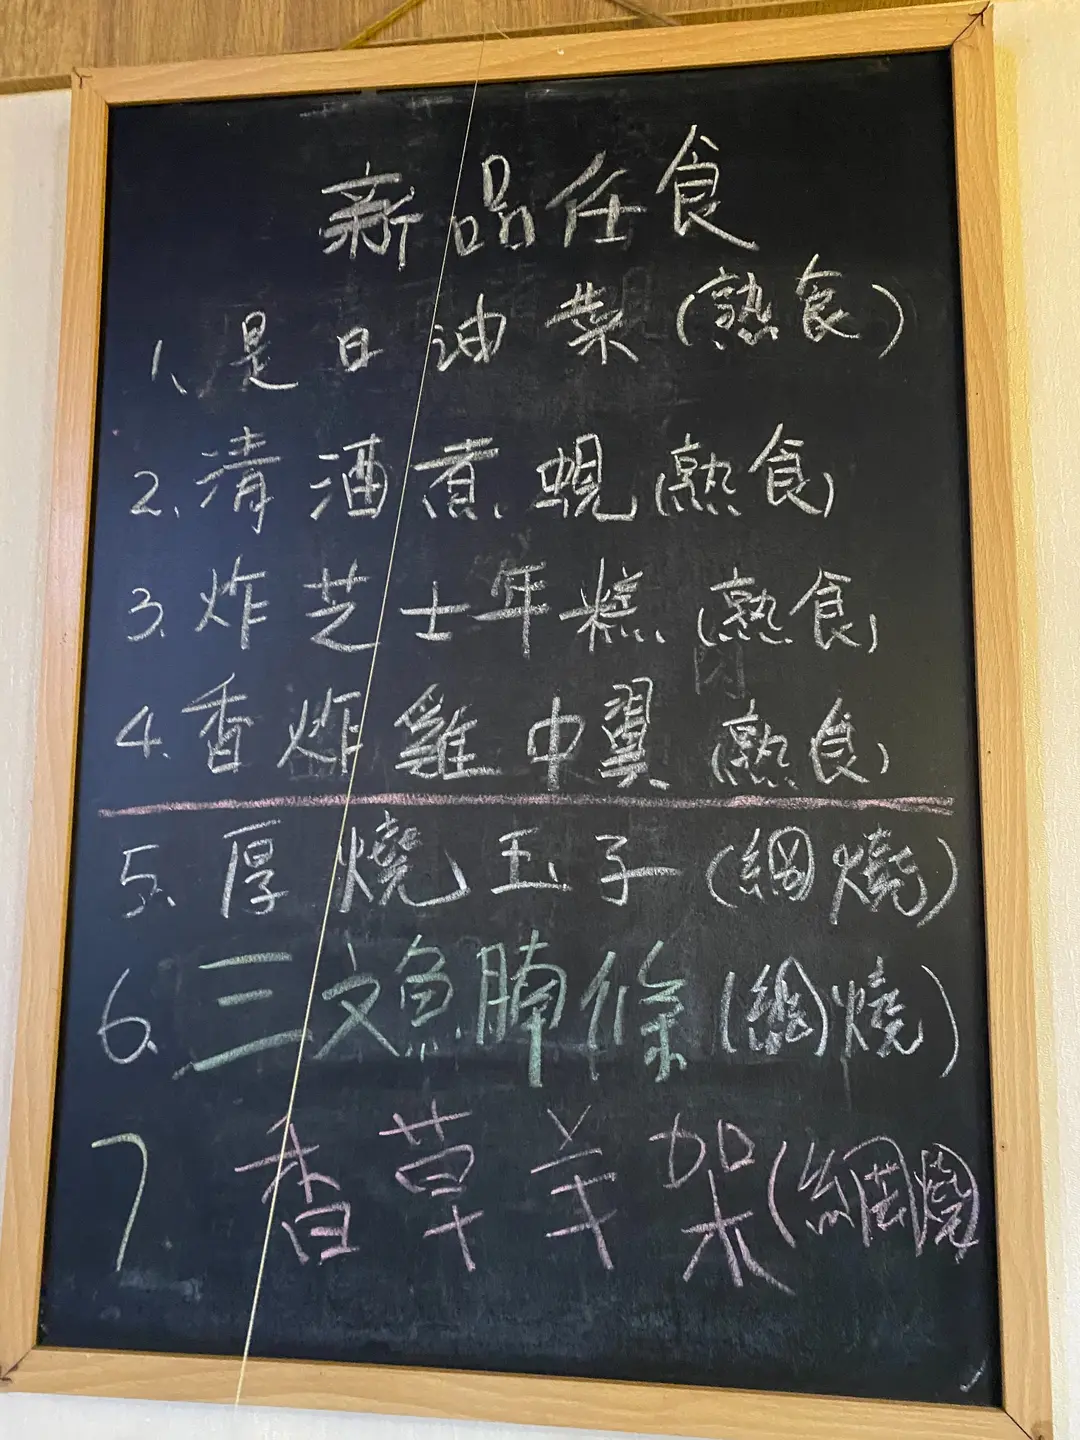 新品任食
1、是日油菜(熟食)
2、清酒煮蜆(熟食)
3、炸芝士年糕(熟食)
4、香炸雞中翼(熟食)
5、厚燒玉子(網燒)
6、三文魚腩條(網燒)
7 香草羊架(網燒)